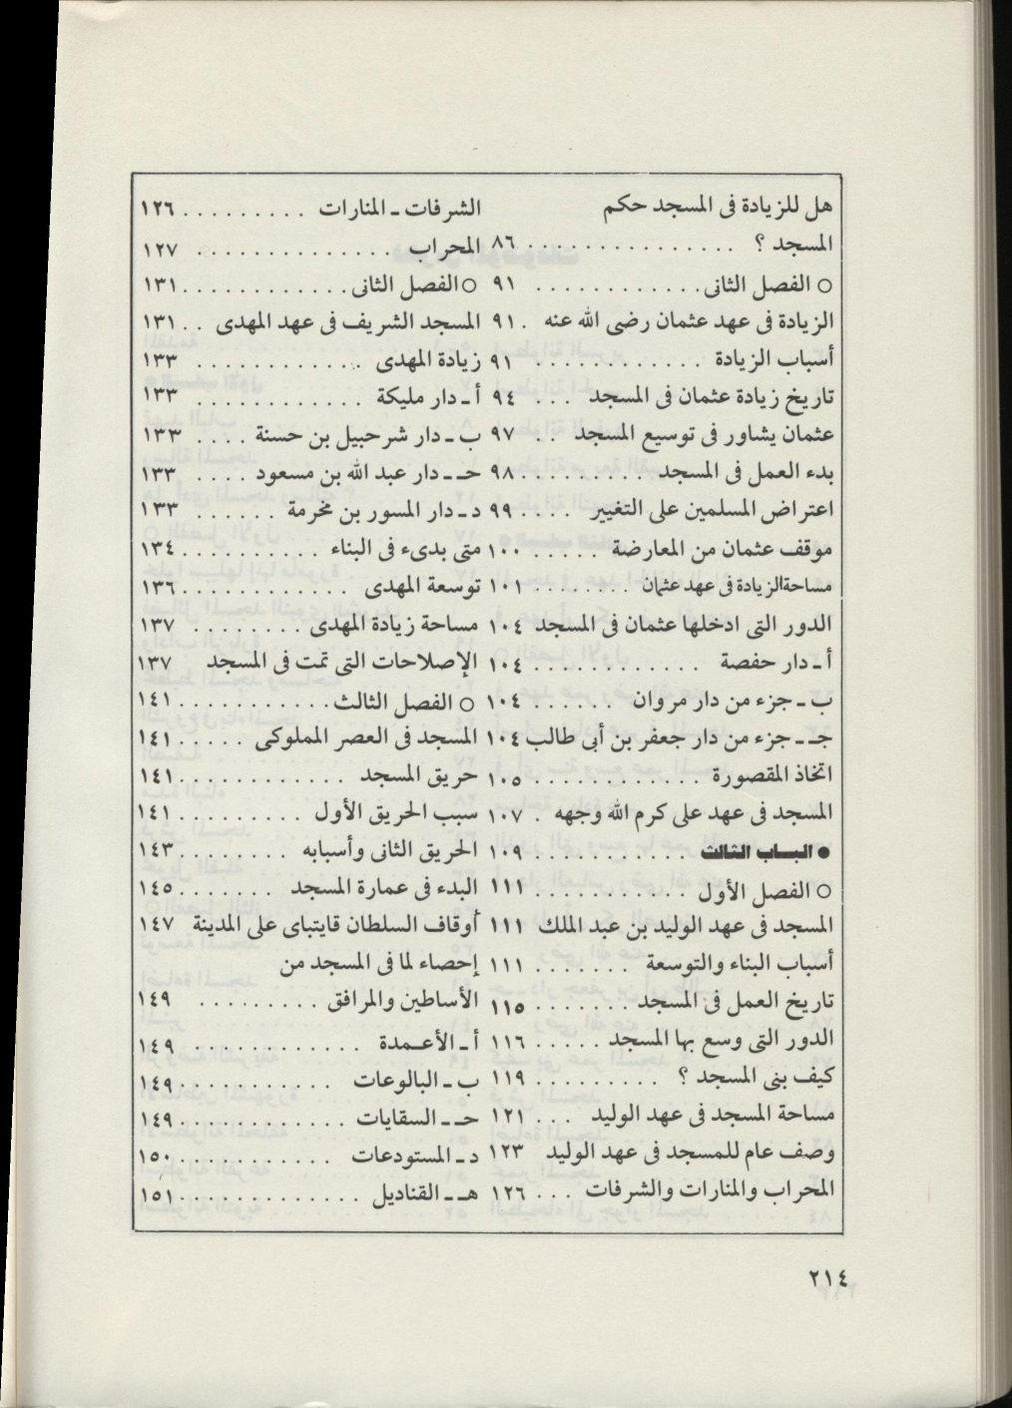 هل للزيادة فى المسجد حكم
المسجد ؟ . . . . . . . . . . . . . . ٨٦
○ الفصل الثانى . . . . . . . . . . . . ٩١
الزيادة فى عهد عثمان رضى الله عنه . ٩١
أسباب الزيادة . . . . . . . . . . . . ٩١
تاريخ زيادة عثمان فى المسجد . . . ٩٤
عثمان يشاور فى توسيع المسجد . . ٩٧
بدء العمل فى المسجد . . . . . . . . . ٩٨
اعتراض المسلمين على التغيير . . . . ٩٩
موقف عثمان من المعارضة . . . . . ١٠٠
مساحة الزيادة فى عهد عثمان . . . . . . . ١٠١
الدور التى ادخلها عثمان فى المسجد ١٠٤
أ ـ دار حفصة . . . . . . . . . . . . ١٠٤
ب ـ جزء من دار مروان . . . . . . ١٠٤
جـ ـ جزء من دار جعفر بن أبى طالب ١٠٤
اتخاذ المقصورة . . . . . . . . . . . . ١٠٥
المسجد فى عهد على كرم الله وجهه . ١٠٧
● البـاب الثالث . . . . . . . . . . . ١٠٩
○ الفصل الأول . . . . . . . . . . . ١١١
المسجد فى عهد الوليد بن عبد الملك ١١١
أسباب البناء والتوسعة . . . . . . . ١١١
تاريخ العمل فى المسجد . . . . . . . ١١٥
الدور التى وسع بها المسجد . . . . . ١١٦
كيف بنى المسجد ؟ . . . . . . . . . ١١٩
مساحة المسجد فى عهد الوليد . . . ١٢١
وصف عام للمسجد فى عهد الوليد ١٢٣
المحراب والمنارات والشرفات . . . ١٢٦
الشرفات ـ المنارات . . . . . . . . . ١٢٦
المحراب . . . . . . . . . . . . . . ١٢٧
○ الفصل الثانى . . . . . . . . . . . . ١٣١
المسجد الشريف فى عهد المهدى . . ١٣١
زيادة المهدى . . . . . . . . . . . . ١٣٣
أ ـ دار مليكة . . . . . . . . . . . . ١٣٣
ب ـ دار شرحبيل بن حسنة . . . . ١٣٣
حـ ـ دار عبد الله بن مسعود . . . . ١٣٣
د ـ دار المسور بن مخرمة . . . . . . ١٣٣
متى بدىء فى البناء . . . . . . . . . . ١٣٤
توسعة المهدى . . . . . . . . . . . . ١٣٦
مساحة زيادة المهدى . . . . . . . . ١٣٧
الإصلاحات التى تمت فى المسجد ١٣٧
○ الفصل الثالث . . . . . . . . . . . ١٤١
المسجد فى العصر المملوكى . . . . . ١٤١
حريق المسجد . . . . . . . . . . . . ١٤١
سبب الحريق الأول . . . . . . . . . ١٤١
الحريق الثانى وأسبابه . . . . . . . . ١٤٣
البدء فى عمارة المسجد . . . . . . . ١٤٥
أوقاف السلطان قايتباى على المدينة ١٤٧
إحصاء لما فى المسجد من
الأساطين والمرافق . . . . . . . . . ١٤٩
أ ـ الأعـمدة . . . . . . . . . . . . ١٤٩
ب ـ البالوعات . . . . . . . . . . . . ١٤٩
حـ ـ السقايات . . . . . . . . . . . . ١٤٩
د ـ المستودعات . . . . . . . . . . . ١٥٠
هـ ـ القناديل . . . . . . . . . . . . . ١٥١
٢١٤